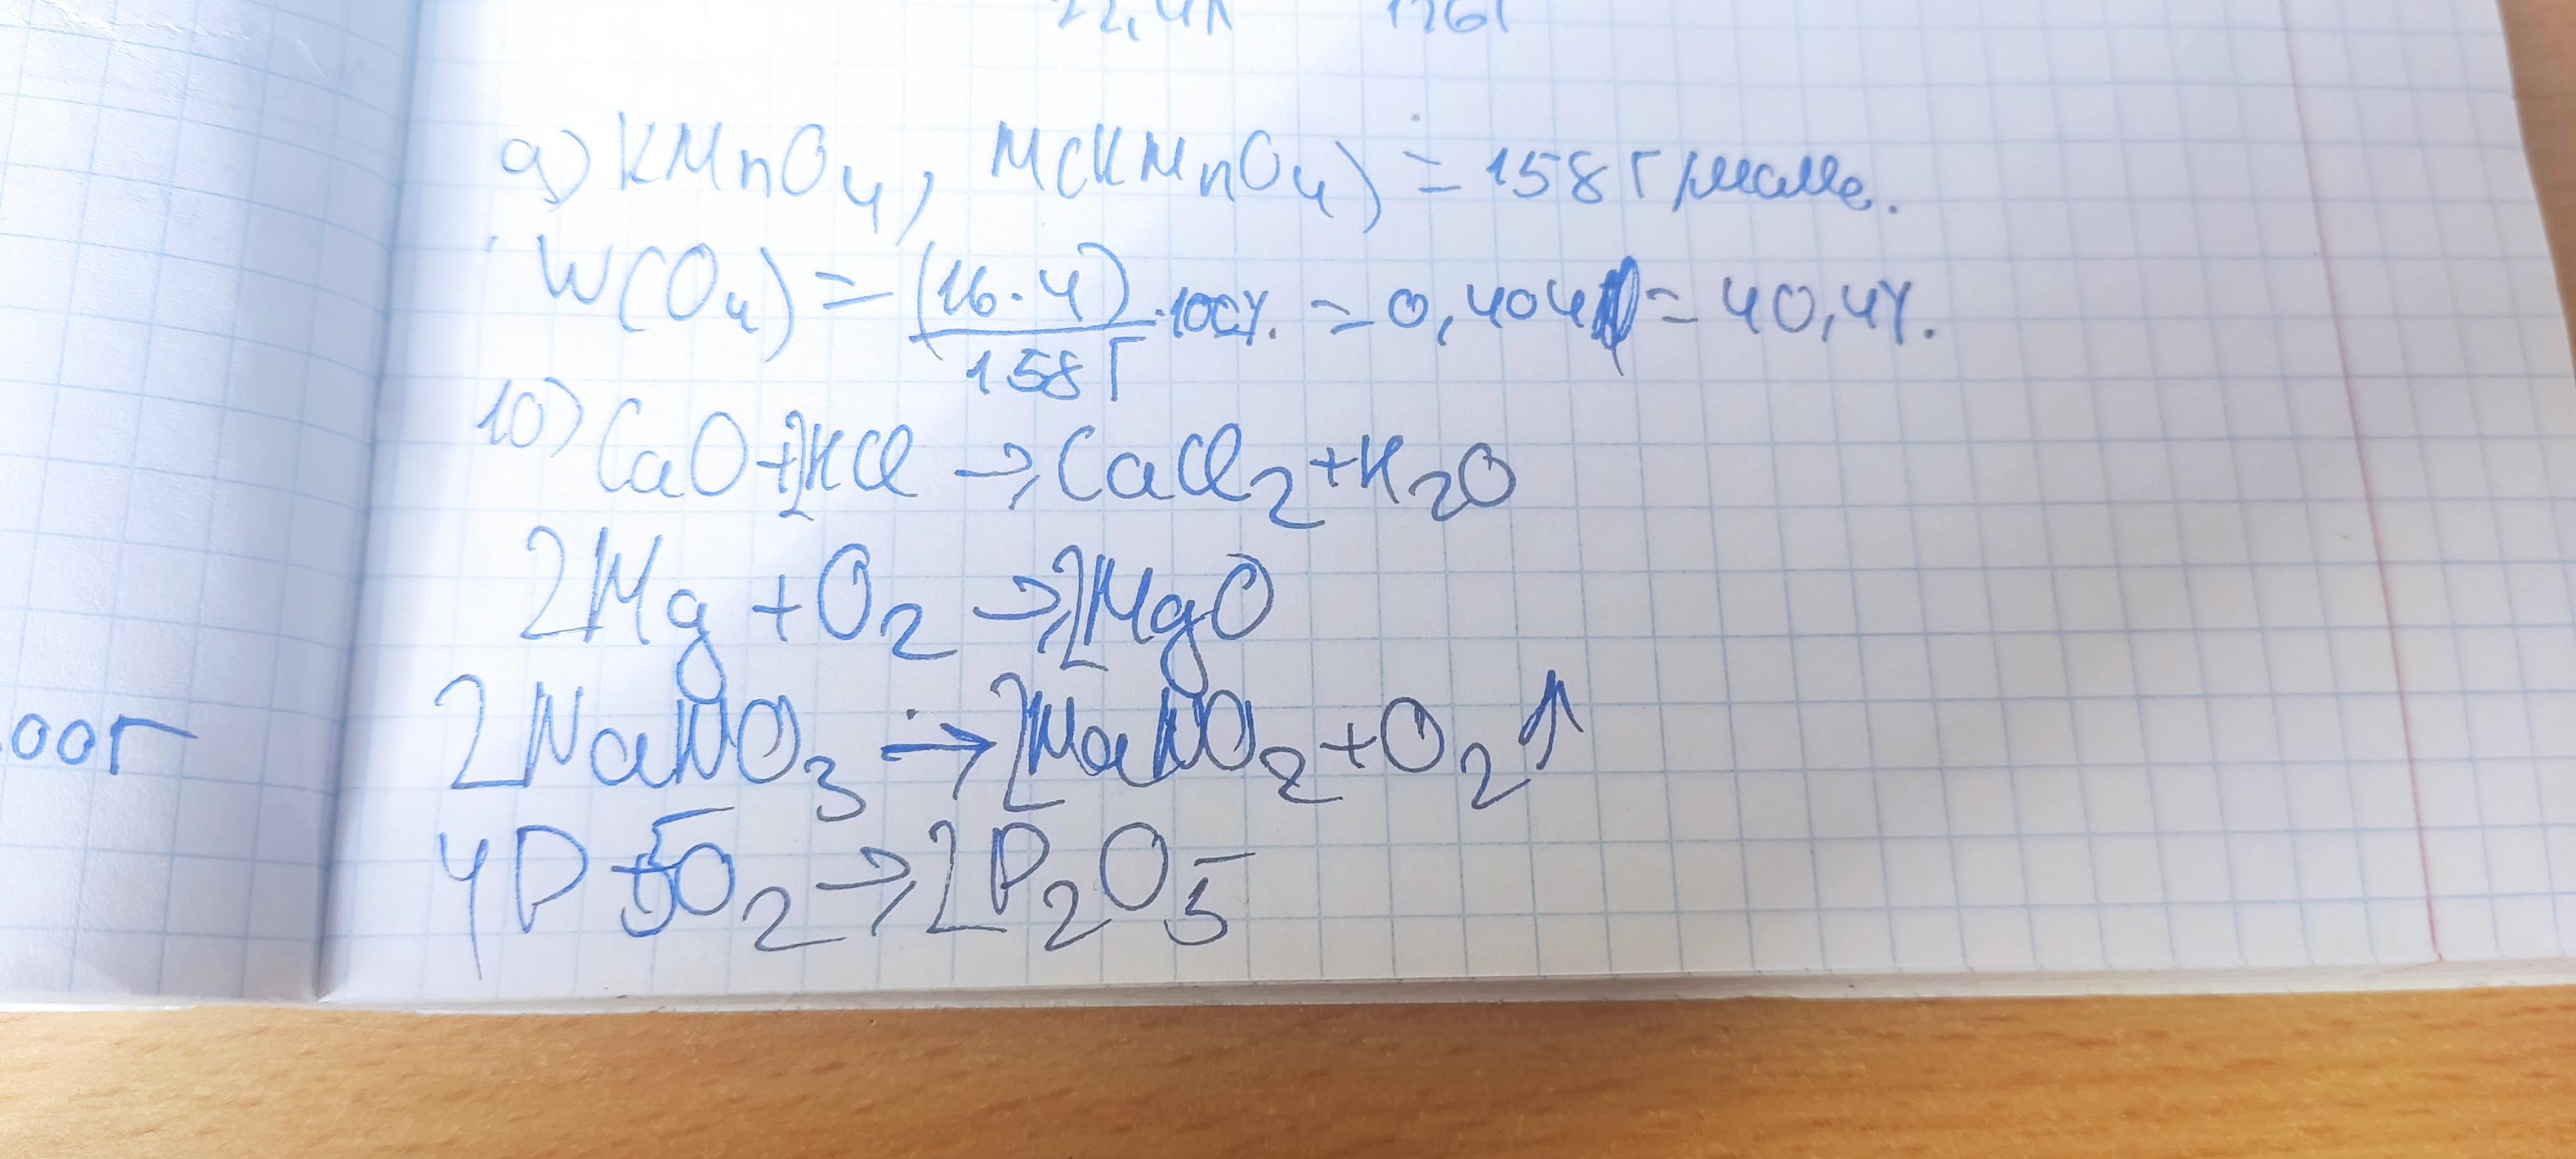 22,4л 126г
9) KMnO4, M(KMnO4) = 158 г/моль.
W(O4) = (16·4)/158г ·100% = 0,404 = 40,4%.
10) CaO+2HCl → CaCl2+H2O
2Mg + O2 → 2MgO
2NaNO3 → 2NaNO2+O2↑
00г
4P+5O2 → 2P2O5